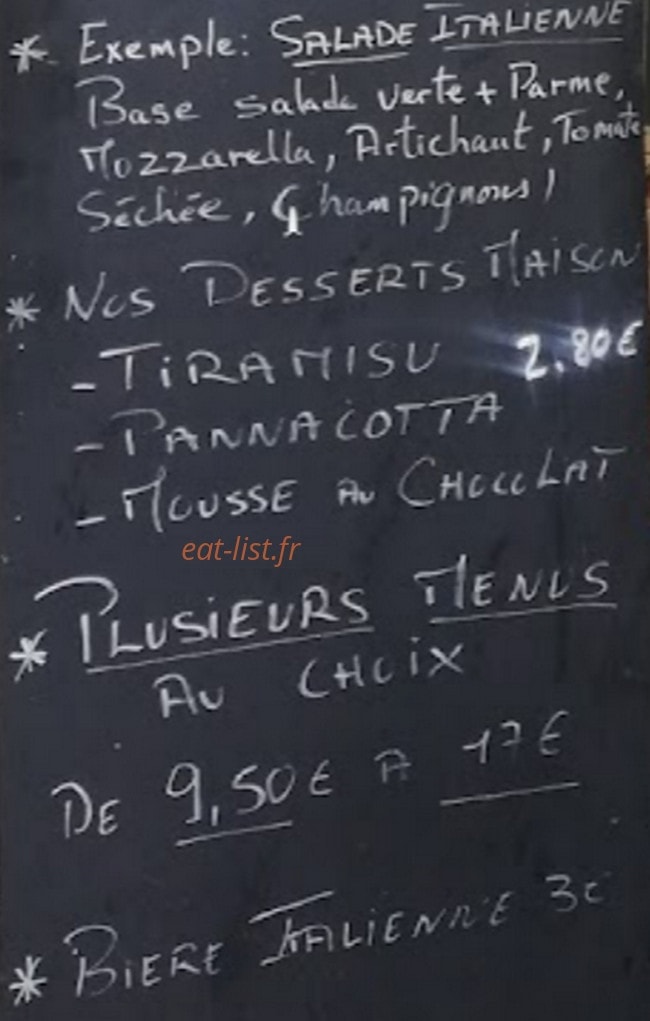 * Exemple: SALADE ITALIENNE
Base salade verte + Parme,
Mozzarella, Artichaut, Tomate
Séchée, Champignons)
* NOS DESSERTS MAISON
- TIRAMISU 2.80€
- PANNACOTTA
- MOUSSE AU CHOCOLAT
eat-list.fr
* PLUSIEURS MENUS
AU CHOIX
DE 9,50€ A 17€
* BIERE ITALIENNE 3€